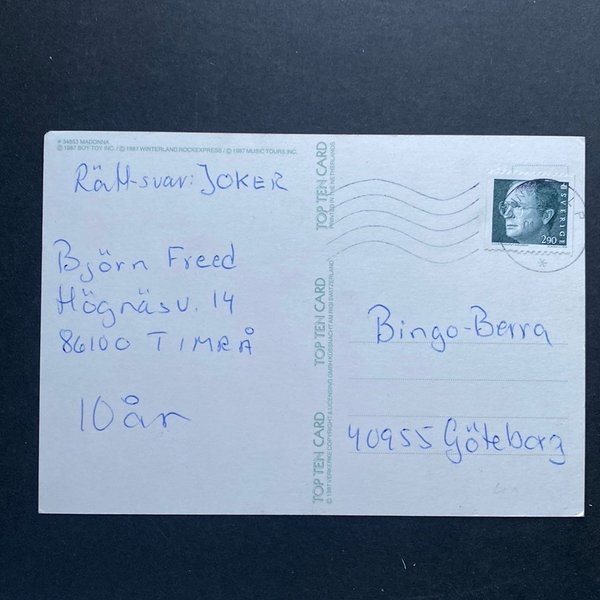 # 34853 MADONNA
© 1987 BOY TOY INC. / © 1987 WINTERLAND ROCKEXPRESS / © 1987 MUSIC TOURS INC.
Rätt-svar: JOKER
Björn Freed
Högnäsv. 14
86100 TIMRÅ
10 år
TOP TEN CARD
PRINTED IN THE NETHERLANDS
TOP TEN CARD
TOP TEN CARD
© 1987 VERKERKE COPYRIGHT & LICENSING GMBH KÜSSNACHT AM RIGI SWITZERLAND
SVERIGE
290
Bingo-Berra
40955 Göteborg